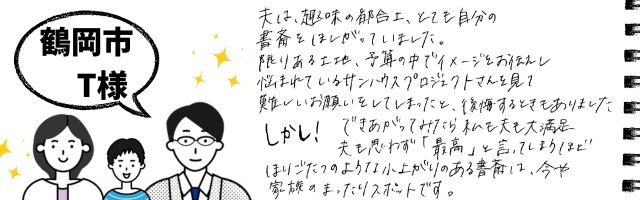 鶴岡市
T様
夫は、趣味の都合上、とても自分の
書斎をほしがっていました。
限りある土地、予算の中でイメージをお伝えし
悩まれているサンハウスプロジェクトさんを見て
難しいお願いをしてしまったと、後悔するときもありました
しかし！ できあがってみたら私も夫も大満足
夫も思わず「最高」と言ってしまうほど
ほりごたつのような小上がりのある書斎は、今や
家族のまったりスポットです。